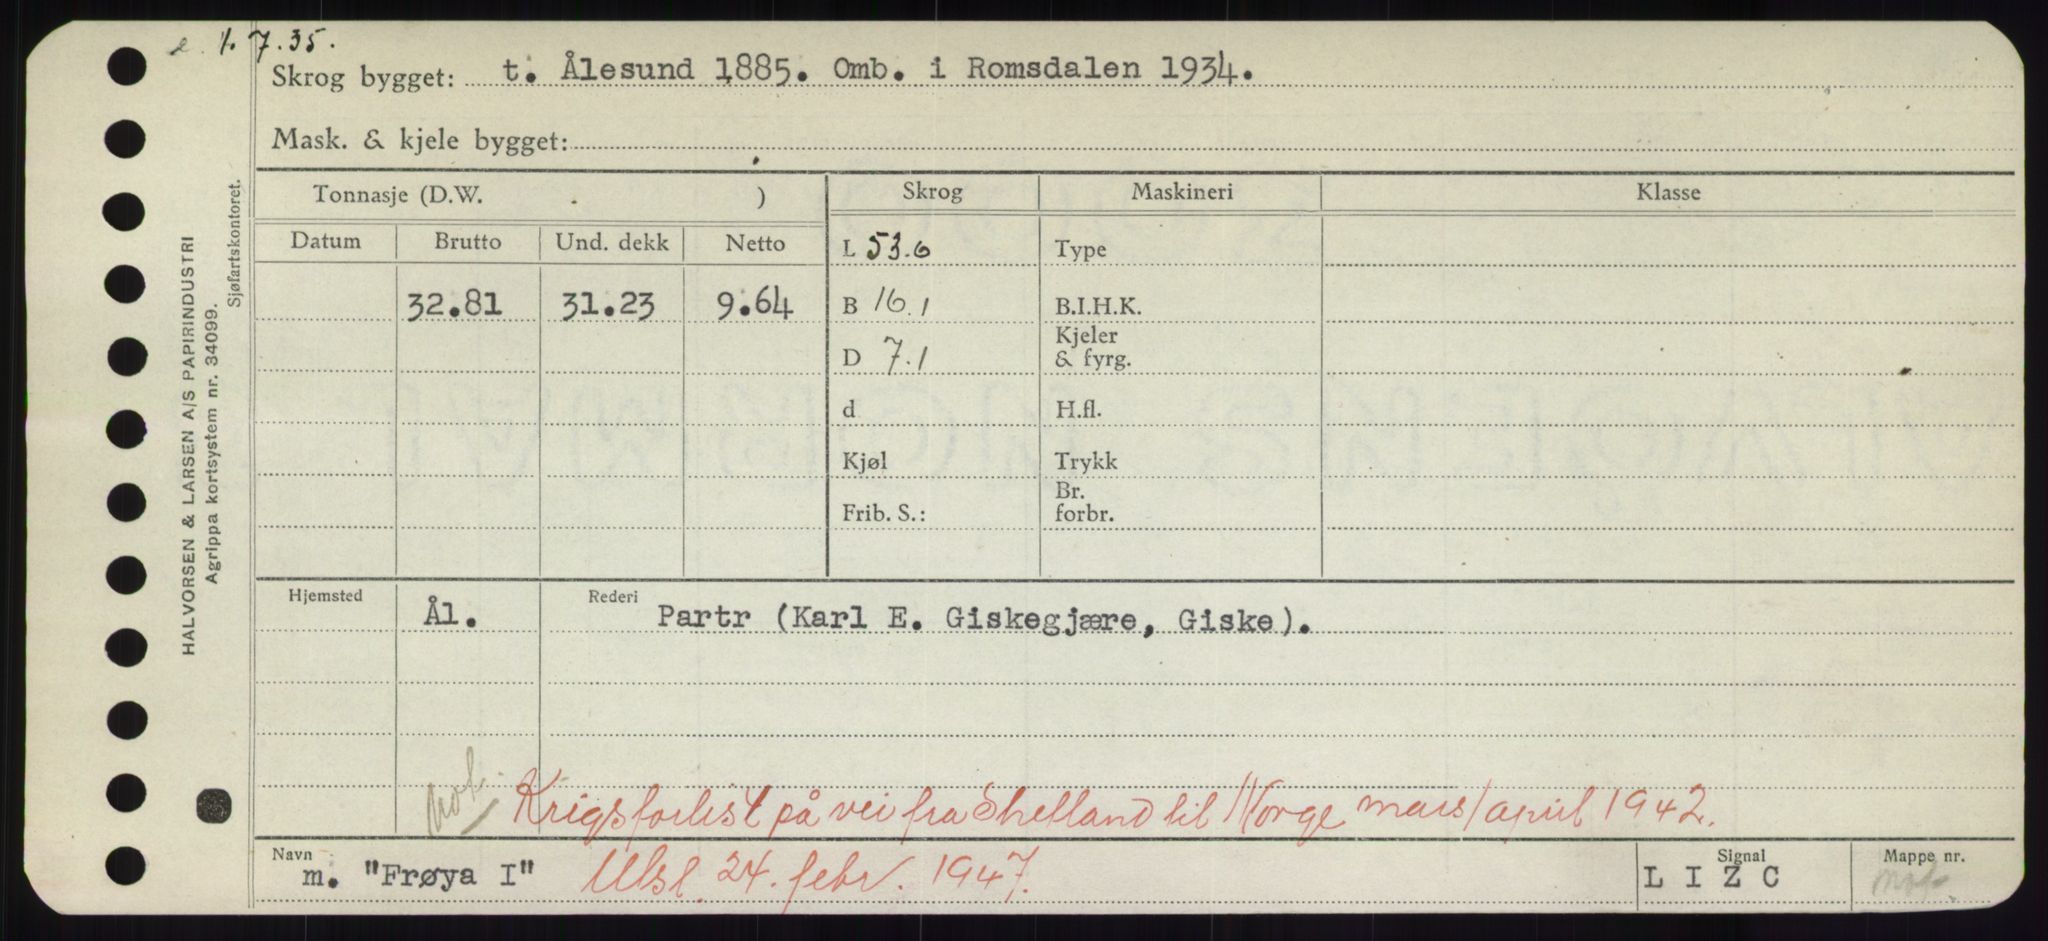 1.7.35.
Skrog bygget: t. Ålesund 1885. Omb. i Romsdalen 1934.
Mask. & kjele bygget:
Tonnasje (D.W. ) Skrog Maskineri Klasse
Datum Brutto Und. dekk Netto L 53.6 Type
32.81 31.23 9.64 B 16.1 B.I.H.K.
D 7.1 Kjeler & fyrg.
d H.fl.
Kjøl Trykk
Frib. S.: Br. forbr.
Hjemsted Ål. Rederi Partr (Karl E. Giskegjære, Giske).
Krigsforlist på vei fra Shetland til Norge mars/april 1942.
Navn m. "Frøya I" 24. febr. 1947. Signal L I Z C Mappe nr.
HALVORSEN & LARSEN A/S PAPIRINDUSTRI
Agrippa kortsystem nr. 34099.
Sjøfartskontoret.